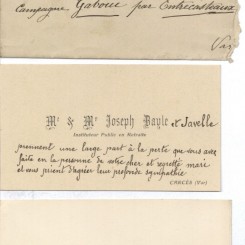 Campagne Gaboue par Entrecasteaux
Var
Mr & Me Joseph Dayle et Javelle
Instituteur Public en Retraite
prennent une large part à la perte que vous avez
faite en la personne de votre cher et regretté mari
et vous prient d'agréer leur profonde sympathie
CARCÈS (Var)